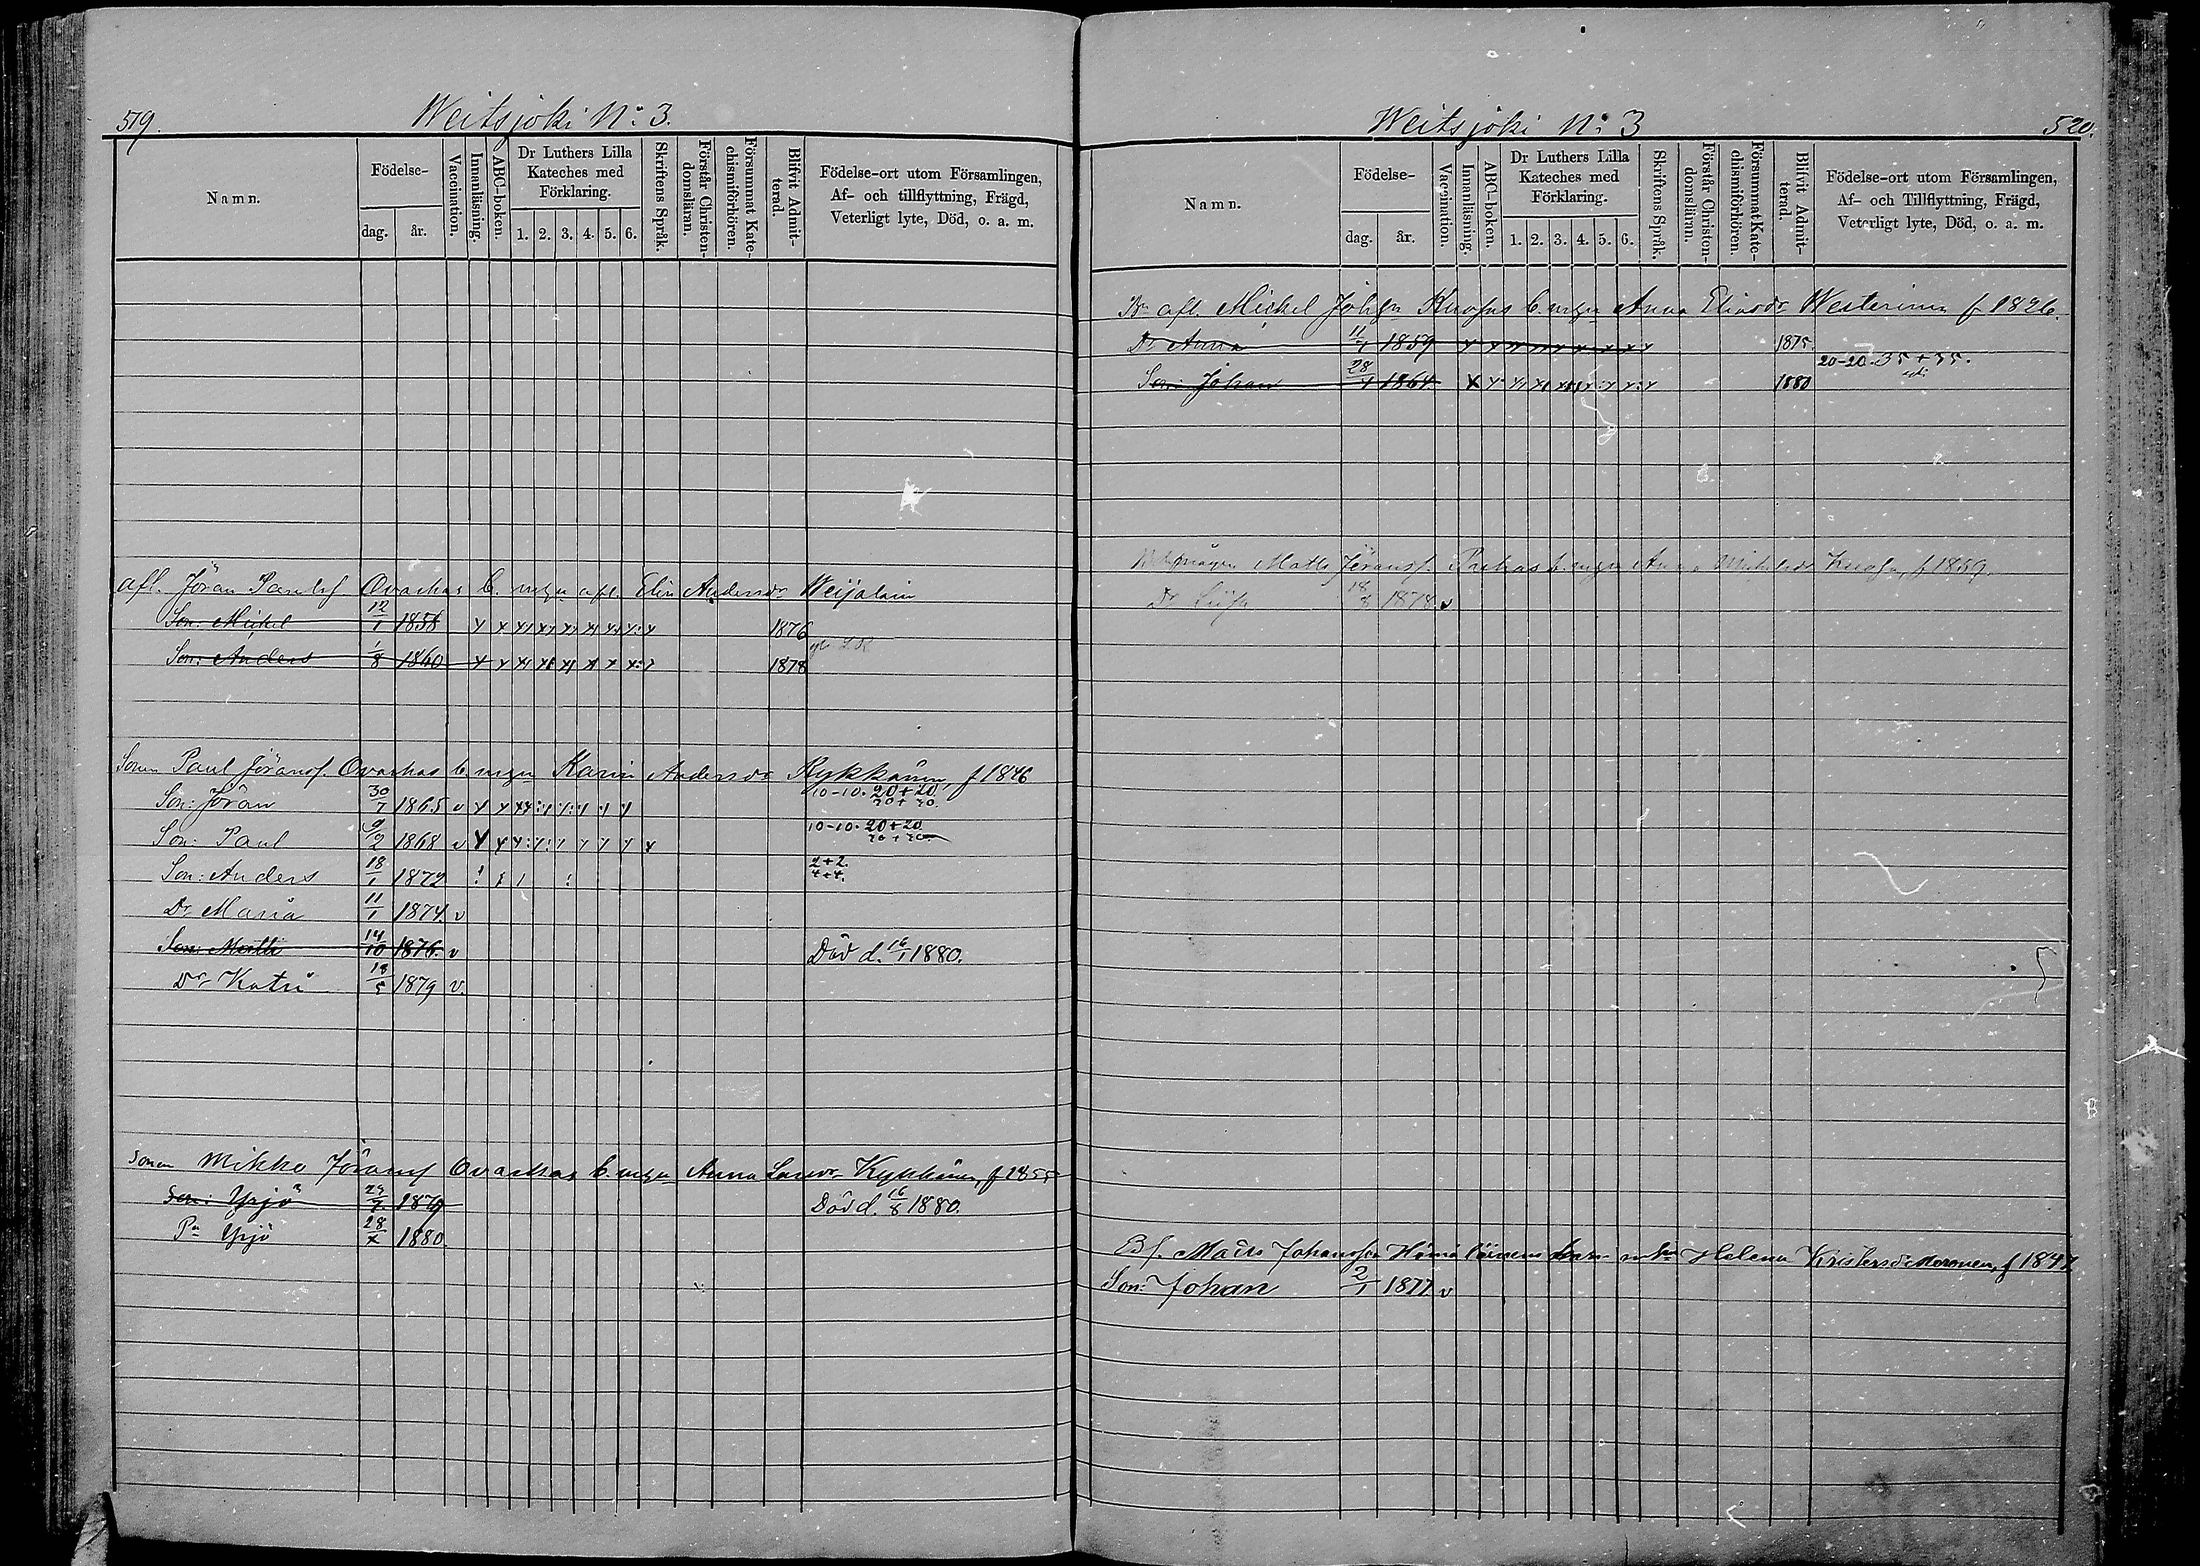 519.
Weitsjoki No: 3.
Namn.
Födelse-
dag.
år.
Vaccination.
Innanläsning.
ABC-boken.
Dr Luthers Lilla
Kateches med
Förklaring.
1. 2. 3. 4. 5. 6.
Skriftens Språk.
Förstår Christen-
domsläran.
Försummat Kate-
chismiförhören.
Blifvit Admit-
terad.
Födelse-ort utom Församlingen,
Af- och tillflyttning, Frägd,
Veterligt lyte, Död, o. a. m.
afl. Jöran Paulsf Ovaskas b. mzn afl. Elin Andersdr Weijalain
Son: Mickel 12/1 1858 1876
Son: Anders 1/8 1860 1878
Sonen Paul Jöransf. Ovaskas b mzn Karin Andersdr Kykkänen, f 1846
Son: Jöran 30/7 1865 v 10-10. 20+20.
Son: Paul 9/2 1868 v 10-10. 20+20.
Son: Anders 18/1 1872 2+2. 4+4.
Dr Maria 11/1 1874. v
Son: Matti 14/10 1876. v Död d. 16/1 1880.
Dr Katri 18/5 1879 v.
Sonen Mikko Jöransf Ovaskas b. mzn Anna Kykkänen, f 1855
Son: Yrjö 1879 Död d. 16/8 1880.
Pn Yrjö 28/x 1880.
Weitsjoki No: 3
520.
Namn.
Födelse-
dag.
år.
Vaccination.
Innanläsning.
ABC-boken.
Dr Luthers Lilla
Kateches med
Förklaring.
1. 2. 3. 4. 5. 6.
Skriftens Språk.
Förstår Christen-
domsläran.
Försummat Kate-
chismiförhören.
Blifvit Admit-
terad.
Födelse-ort utom Församlingen,
Af- och Tillflyttning, Frägd,
Veterligt lyte, Död, o. a. m.
afl. Mickel Johsn b. mzn Anna Eliasdr Westerinen f 1826.
Dr Anna 11/1 1859 1875
Son: Johan 28/1 1864 1880 20-20. 35+35.
Matts Jöransf. b. mzn f 1859.
Dr 18/8 1878. v
Matts Johansson Helena Kristersdr f 1847
Son: Johan 2/1 1877. v